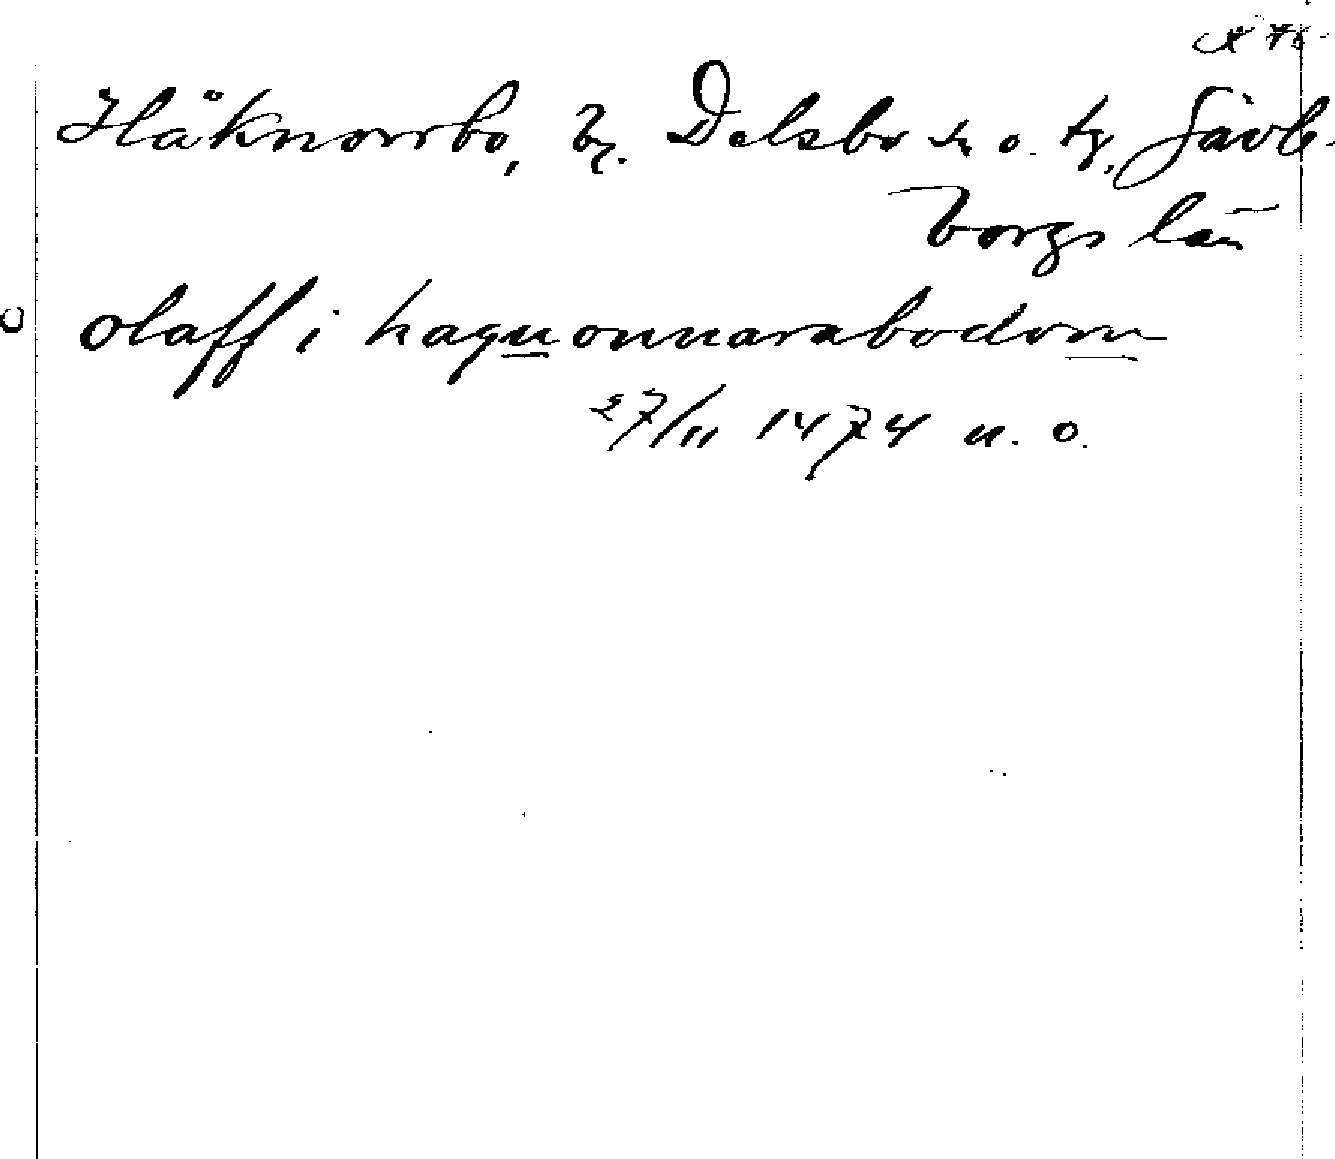 Håknorrbo, by. Delsbo sn o. tg, Gävle-
borgs län
olaff i haquonnarabodom
27/11 1474 u. o.